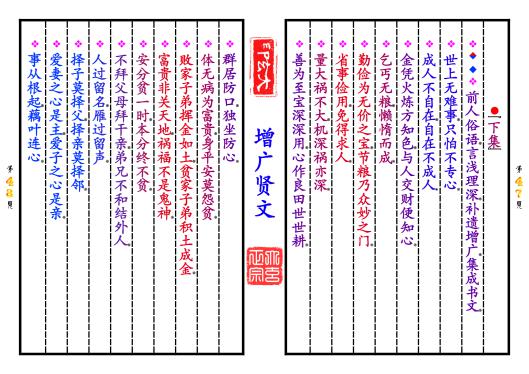 下集
前人俗语言浅理深补遗增广集成书文
世上无难事.只怕不专心.
成人不自在.自在不成人.
金凭火炼方知色.与人交财便知心.
乞丐无粮.懒惰而成.
勤俭为无价之宝.节粮乃众妙之门.
省事俭用.免得求人.
量大祸不大.机深祸亦深.
善为至宝深深用.心作良田世世耕.
增广贤文
群居防口.独坐防心.
体无病为富贵.身平安莫怨贫.
败家子弟挥金如土.贫家子弟积土成金.
富贵非关天地.祸福不是鬼神.
安分贫一时.本分终不贫.
不拜父母拜干亲.弟兄不和结外人.
人过留名.雁过留声.
择子莫择父.择亲莫择邻.
爱妻之心是主.爱子之心是亲.
事从根起.藕叶连心.